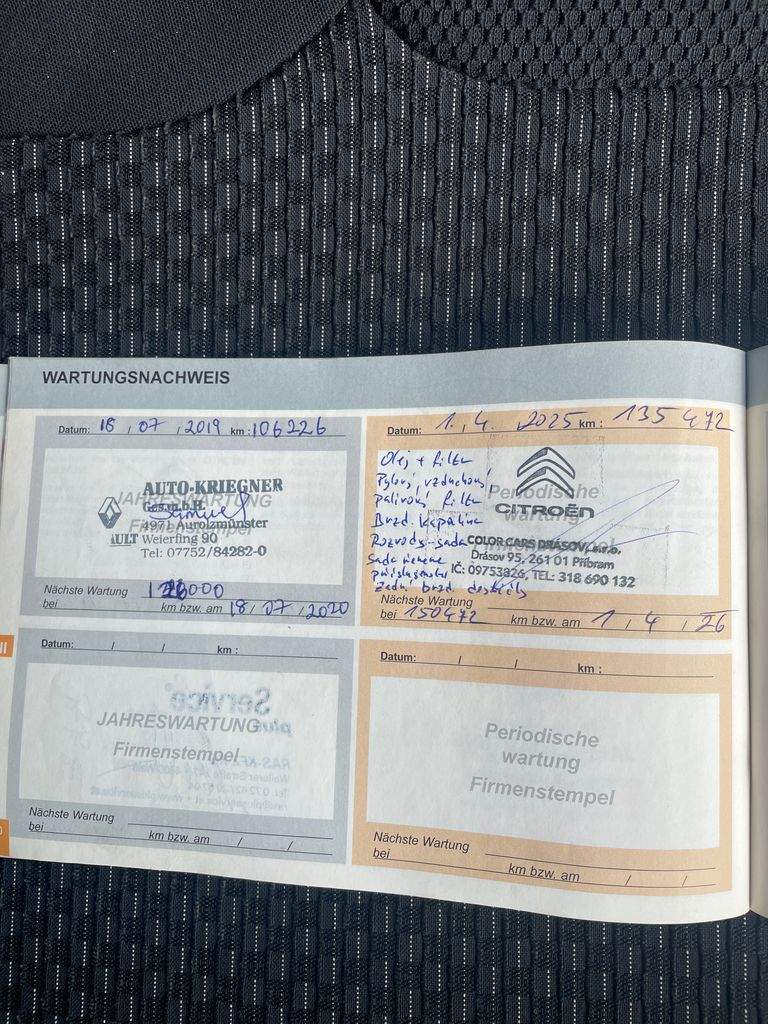 WARTUNGSNACHWEIS
Datum: 18 / 07 / 2019 km : 106226
JAHRESWARTUNG
Firmenstempel
AUTO-KRIEGNER
Ges.m.b.H.
4971 Aurolzmünster
AULT Weierfing 90
Tel: 07752/84282-0
Nächste Wartung
bei km bzw. am 18 / 07 / 2020
Datum: 1. / 4. / 2025 km : 135 472
Olej + filtr
Pylový, vzduchový,
palivový filtr
Brzd. kapalina
Rozvody - sada
Sada
příslušenství
Zadní brzd. destičky
Periodische
wartung
CITROËN
COLOR CARS DRÁSOV, s.r.o.
Drásov 95, 261 01 Příbram
IČ: 09753826, TEL: 318 690 132
Nächste Wartung
bei 150472 km bzw. am 1 / 4 / 26
Datum: / / km :
JAHRESWARTUNG
Firmenstempel
Nächste Wartung
bei km bzw. am / /
Datum: / / km :
Periodische
wartung
Firmenstempel
Nächste Wartung
bei km bzw. am / /